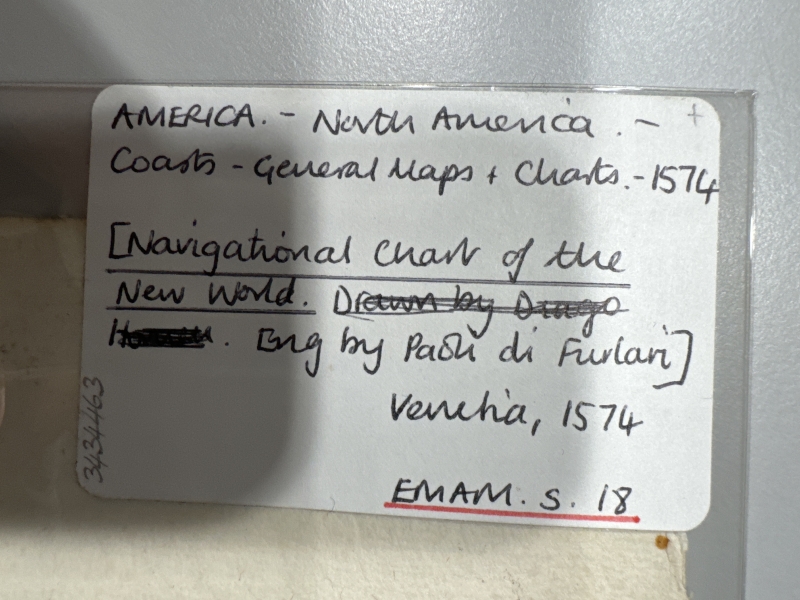 AMERICA. - North America. - +
Coasts - General Maps + Charts. - 1574
[Navigational Chart of the
New World. Drawn by Drago
. Eng by Paoli di Furlari]
Venetia, 1574
EMAM. S. 18
3434463